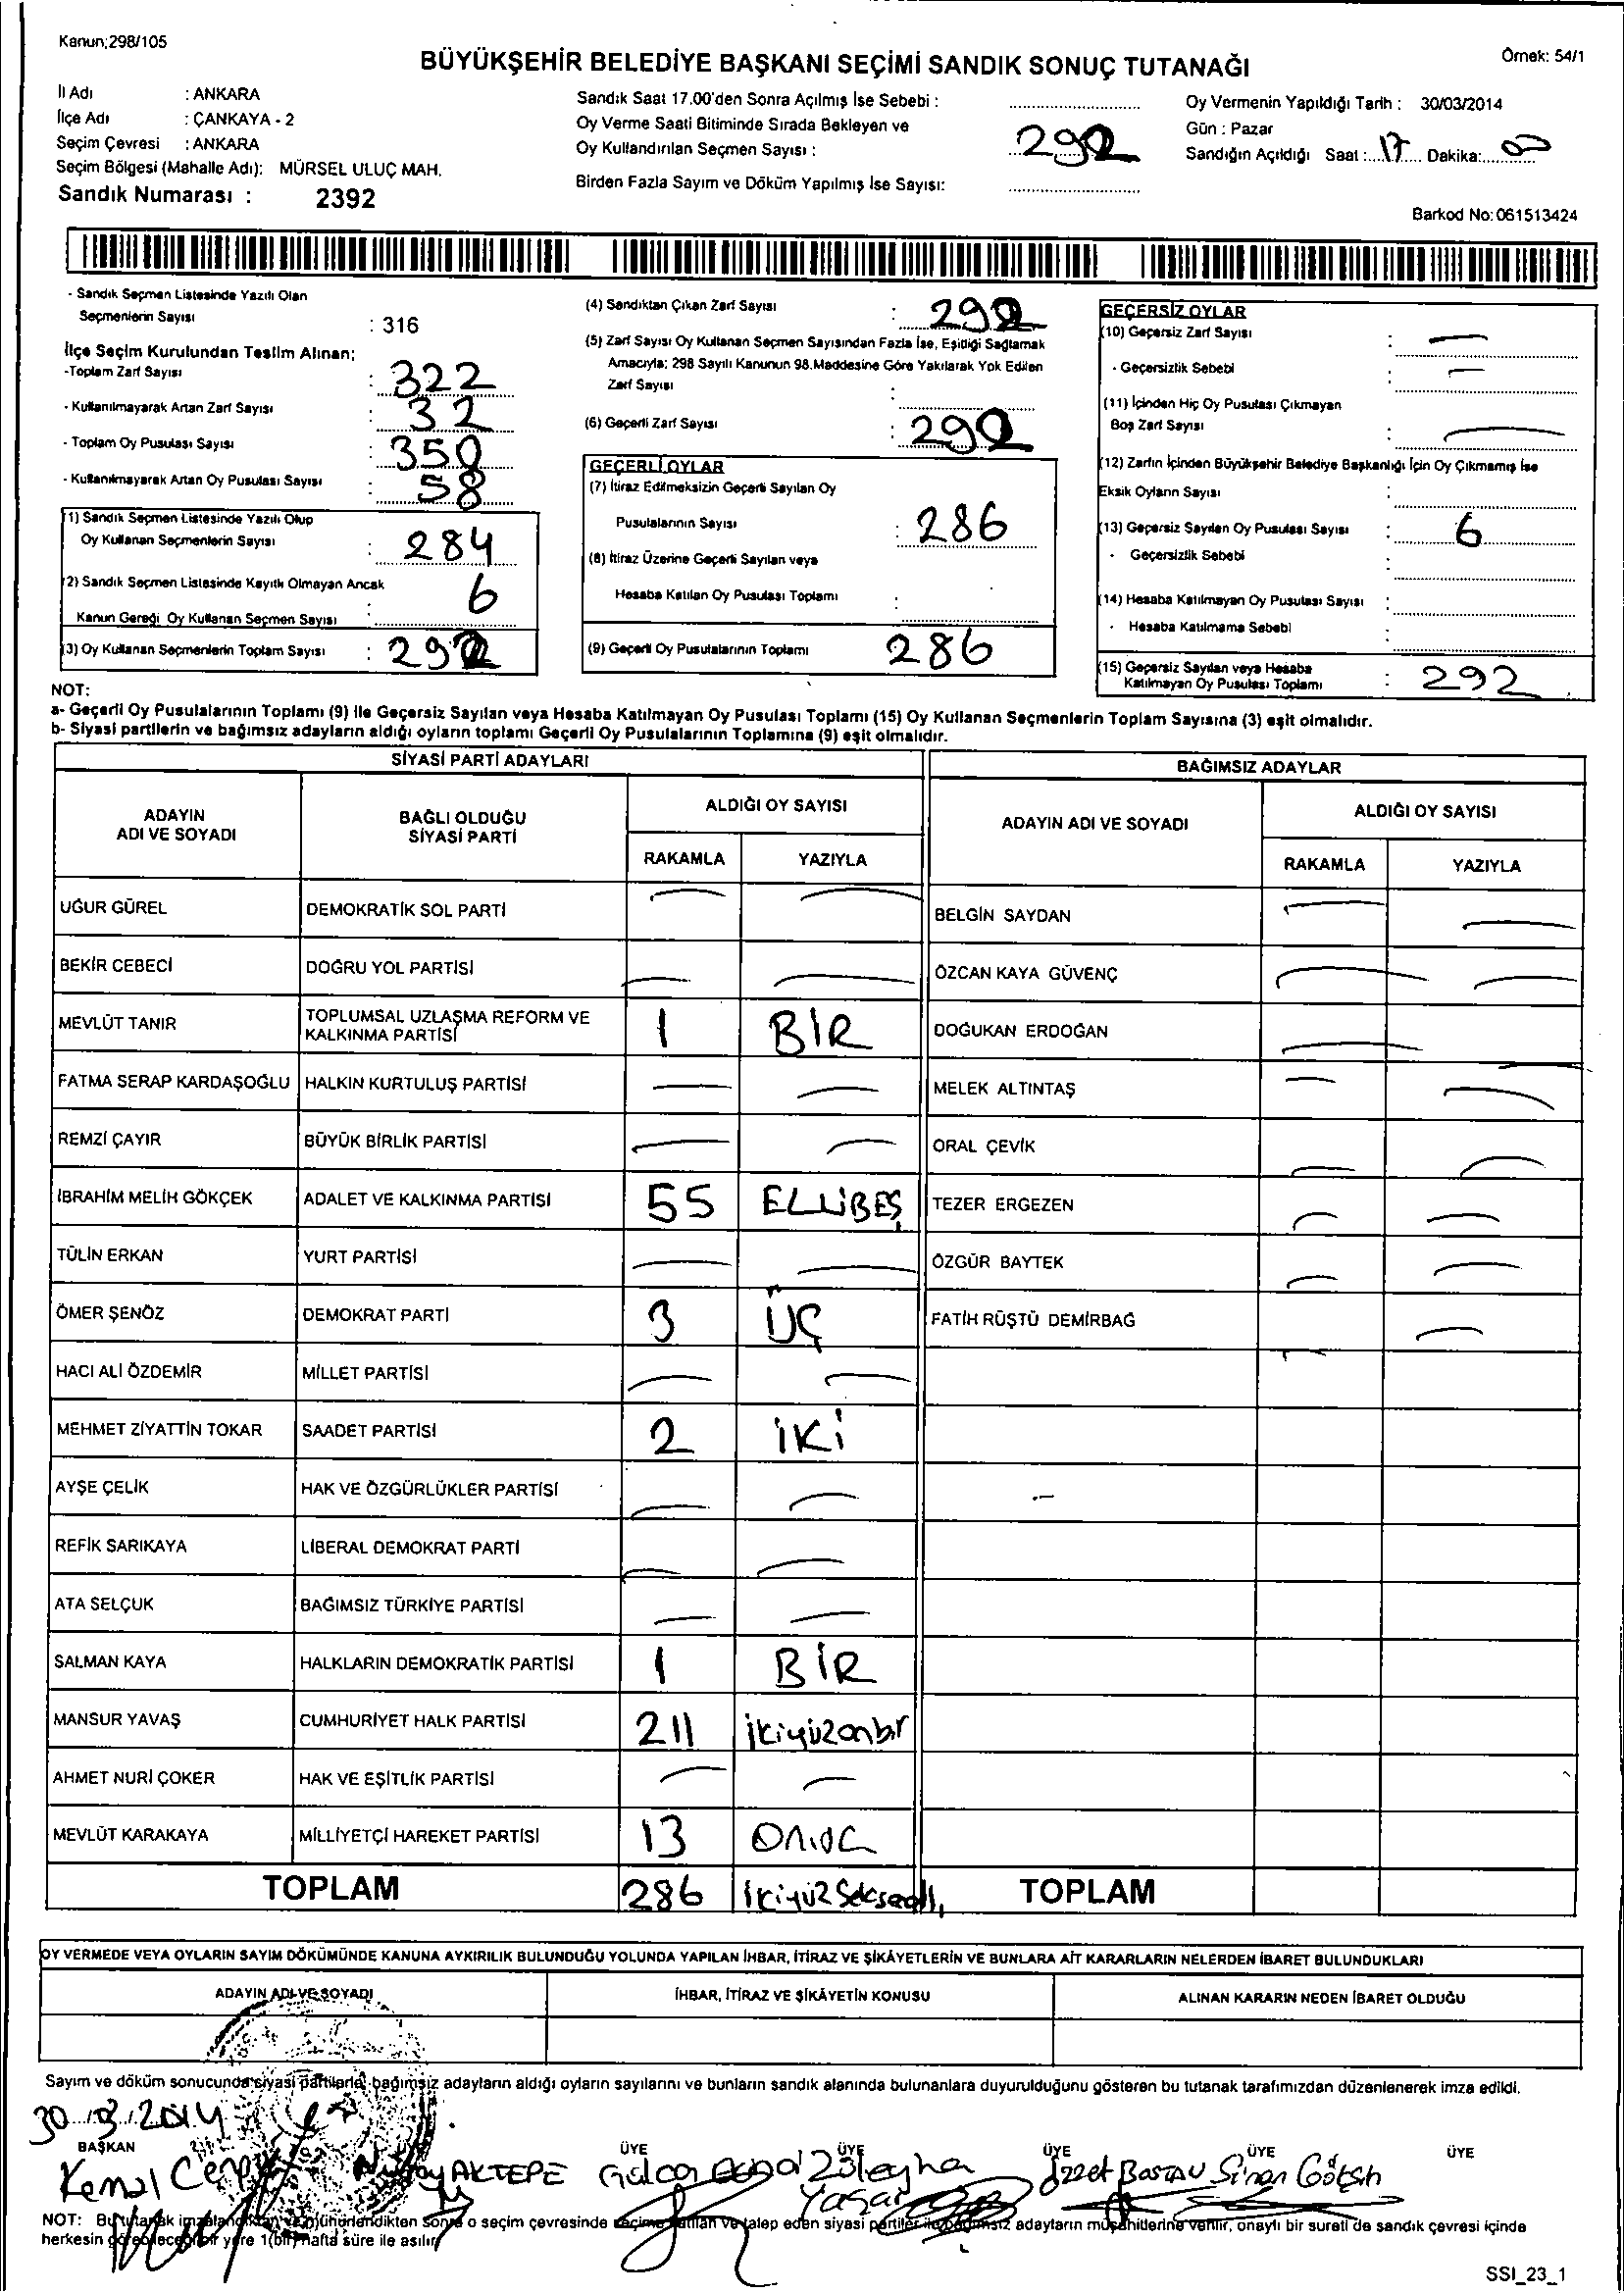 Kanun;298/105
Örnek: 54/1
BÜYÜKŞEHİR BELEDİYE BAŞKANI SEÇİMİ SANDIK SONUÇ TUTANAĞI
İl Adı : ANKARA
İlçe Adı : ÇANKAYA - 2
Seçim Çevresi : ANKARA
Seçim Bölgesi (Mahalle Adı): MÜRSEL ULUÇ MAH.
Sandık Numarası : 2392
Sandık Saat 17.00'den Sonra Açılmış İse Sebebi :
Oy Verme Saati Bitiminde Sırada Bekleyen ve
Oy Kullandırılan Seçmen Sayısı : 292
Birden Fazla Sayım ve Döküm Yapılmış İse Sayısı:
Oy Vermenin Yapıldığı Tarih : 30/03/2014
Gün : Pazar
Sandığın Açıldığı Saat : 17 Dakika: 00
Barkod No: 061513424
- Sandık Seçmen Listesinde Yazılı Olan
Seçmenlerin Sayısı : 316
İlçe Seçim Kurulundan Teslim Alınan;
-Toplam Zarf Sayısı : 322
- Kullanılmayarak Artan Zarf Sayısı : 32
- Toplam Oy Pusulası Sayısı : 350
- Kullanılmayarak Artan Oy Pusulası Sayısı : 58
(1) Sandık Seçmen Listesinde Yazılı Olup
Oy Kullanan Seçmenlerin Sayısı : 284
(2) Sandık Seçmen Listesinde Kayıtlı Olmayan Ancak
Kanun Gereği Oy Kullanan Seçmen Sayısı : 6
(3) Oy Kullanan Seçmenlerin Toplam Sayısı : 292
(4) Sandıktan Çıkan Zarf Sayısı : 292
(5) Zarf Sayısı Oy Kullanan Seçmen Sayısından Fazla İse, Eşitliği Sağlamak
Amacıyla; 298 Sayılı Kanunun 98.Maddesine Göre Yakılarak Yok Edilen
Zarf Sayısı :
(6) Geçerli Zarf Sayısı : 292
GEÇERLİ OYLAR
(7) İtiraz Edilmeksizin Geçerli Sayılan Oy
Pusulalarının Sayısı : 286
(8) İtiraz Üzerine Geçerli Sayılan veya
Hesaba Katılan Oy Pusulası Toplamı :
(9) Geçerli Oy Pusulalarının Toplamı 286
GEÇERSİZ OYLAR
(10) Geçersiz Zarf Sayısı : —
- Geçersizlik Sebebi : —
(11) İçinden Hiç Oy Pusulası Çıkmayan
Boş Zarf Sayısı : —
(12) Zarfın İçinden Büyükşehir Belediye Başkanlığı İçin Oy Çıkmamış İse
Eksik Oyların Sayısı :
(13) Geçersiz Sayılan Oy Pusulası Sayısı : 6
- Geçersizlik Sebebi :
(14) Hesaba Katılmayan Oy Pusulası Sayısı :
- Hesaba Katılmama Sebebi :
(15) Geçersiz Sayılan veya Hesaba
Katılmayan Oy Pusulası Toplamı : 292
NOT:
a- Geçerli Oy Pusulalarının Toplamı (9) ile Geçersiz Sayılan veya Hesaba Katılmayan Oy Pusulası Toplamı (15) Oy Kullanan Seçmenlerin Toplam Sayısına (3) eşit olmalıdır.
b- Siyasi partilerin ve bağımsız adayların aldığı oyların toplamı Geçerli Oy Pusulalarının Toplamına (9) eşit olmalıdır.
SİYASİ PARTİ ADAYLARI
ADAYIN ADI VE SOYADI
BAĞLI OLDUĞU SİYASİ PARTİ
ALDIĞI OY SAYISI
RAKAMLA YAZIYLA
UĞUR GÜREL DEMOKRATİK SOL PARTİ — —
BEKİR CEBECİ DOĞRU YOL PARTİSİ — —
MEVLÜT TANIR TOPLUMSAL UZLAŞMA REFORM VE KALKINMA PARTİSİ 1 BİR
FATMA SERAP KARDAŞOĞLU HALKIN KURTULUŞ PARTİSİ — —
REMZİ ÇAYIR BÜYÜK BİRLİK PARTİSİ — —
İBRAHİM MELİH GÖKÇEK ADALET VE KALKINMA PARTİSİ 55 ELLİBEŞ
TÜLİN ERKAN YURT PARTİSİ — —
ÖMER ŞENÖZ DEMOKRAT PARTİ 3 ÜÇ
HACI ALİ ÖZDEMİR MİLLET PARTİSİ — —
MEHMET ZİYATTİN TOKAR SAADET PARTİSİ 2 İKİ
AYŞE ÇELİK HAK VE ÖZGÜRLÜKLER PARTİSİ — —
REFİK SARIKAYA LİBERAL DEMOKRAT PARTİ — —
ATA SELÇUK BAĞIMSIZ TÜRKİYE PARTİSİ — —
SALMAN KAYA HALKLARIN DEMOKRATİK PARTİSİ 1 BİR
MANSUR YAVAŞ CUMHURİYET HALK PARTİSİ 211 ikiyüzonbir
AHMET NURİ ÇOKER HAK VE EŞİTLİK PARTİSİ — —
MEVLÜT KARAKAYA MİLLİYETÇİ HAREKET PARTİSİ 13 Onüç
TOPLAM 286 ikiyüz Seksenaltı
BAĞIMSIZ ADAYLAR
ADAYIN ADI VE SOYADI
ALDIĞI OY SAYISI
RAKAMLA YAZIYLA
BELGİN SAYDAN — —
ÖZCAN KAYA GÜVENÇ — —
DOĞUKAN ERDOĞAN — —
MELEK ALTINTAŞ — —
ORAL ÇEVİK — —
TEZER ERGEZEN — —
ÖZGÜR BAYTEK — —
FATİH RÜŞTÜ DEMİRBAĞ — —
TOPLAM
OY VERMEDE VEYA OYLARIN SAYIM DÖKÜMÜNDE KANUNA AYKIRILIK BULUNDUĞU YOLUNDA YAPILAN İHBAR, İTİRAZ VE ŞİKÂYETLERİN VE BUNLARA AİT KARARLARIN NELERDEN İBARET BULUNDUKLARI
ADAYIN ADI VE SOYADI
İHBAR, İTİRAZ VE ŞİKÂYETİN KONUSU
ALINAN KARARIN NEDEN İBARET OLDUĞU
Sayım ve döküm sonucunda siyasi partilerle bağımsız adayların aldığı oyların sayılarını ve bunların sandık alanında bulunanlara duyurulduğunu gösteren bu tutanak tarafımızdan düzenlenerek imza edildi.
30.3.2014
BAŞKAN ÜYE ÜYE ÜYE ÜYE ÜYE
Kemal AKTEPE Züleyha Yaşar İzzet BOSTAN Sinan
NOT: Bu tutanak imzalandıktan ve mühürlendikten sonra o seçim çevresinde seçime katılan ve talep eden siyasi partiler ile bağımsız adayların müşahitlerine verilir, onaylı bir sureti de sandık çevresi içinde
herkesin görebileceği bir yere 1(bir) hafta süre ile asılır.
SSI_23_1